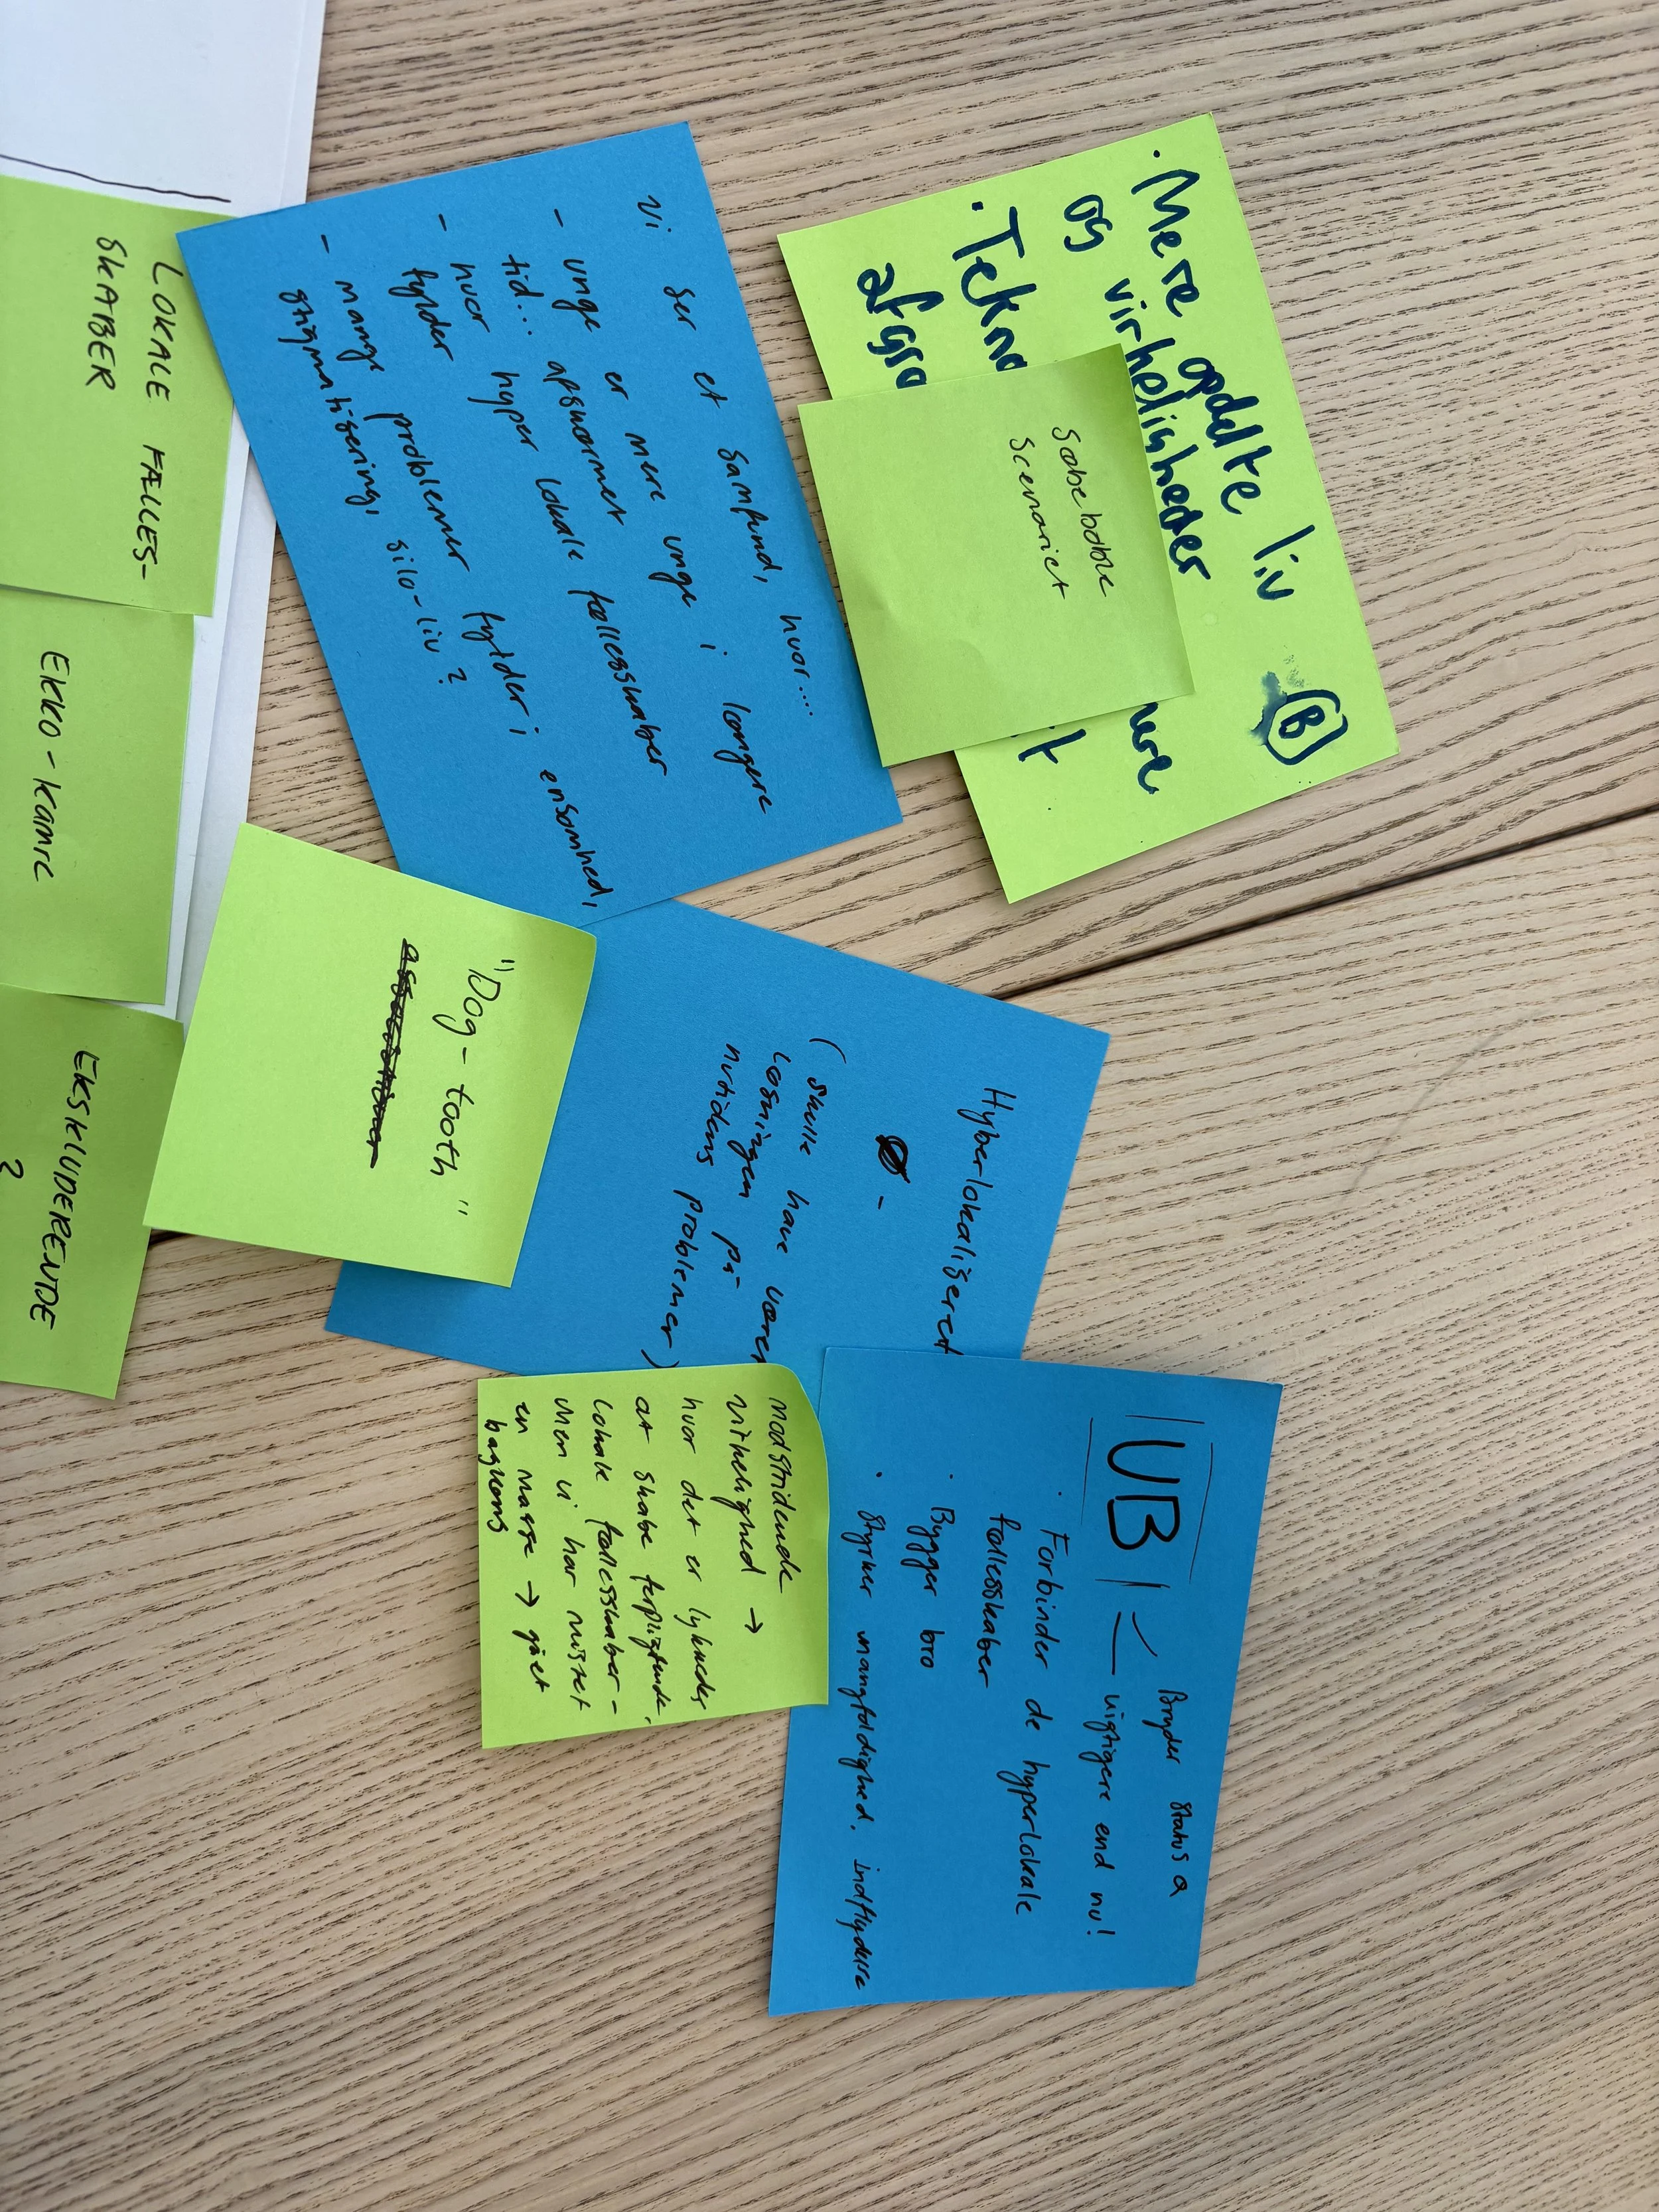 • Mere opdelte liv
og virkelisheder
(B)
• Tekno
afgrø
Sæbeboble
Scenariet
Vi ser et samfund, hvor....
- unge er mere unge i længere
tid...
- hvor hyper lokale fællesskaber
fylder
- mange problemer fylder i ensomhed,
stigmatisering, silo-liv?
LOKALE FÆLLES-
SKABER
EKKO-KAMRE
EKSKLUDERENDE
?
"Dog-tooth"
Hyberlokaliseret
(skulle have været
løsningen på
nutidens problemer)
UB
Bryder status q
vigtigere end nu!
• Forbinder de hyperlokale
fællesskaber
• Bygger bro
• Styrker mangfoldighed. indflydelse
modstridende
virkelighed →
hvor det er lykkedes
at skabe forpligtende,
lokale fællesskaber -
men vi har mistet
en masse → gået
baglæns